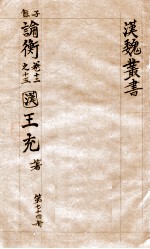 漢魏叢書
子包
論衡 卷十三之十五
漢 王充 著
第七十四冊